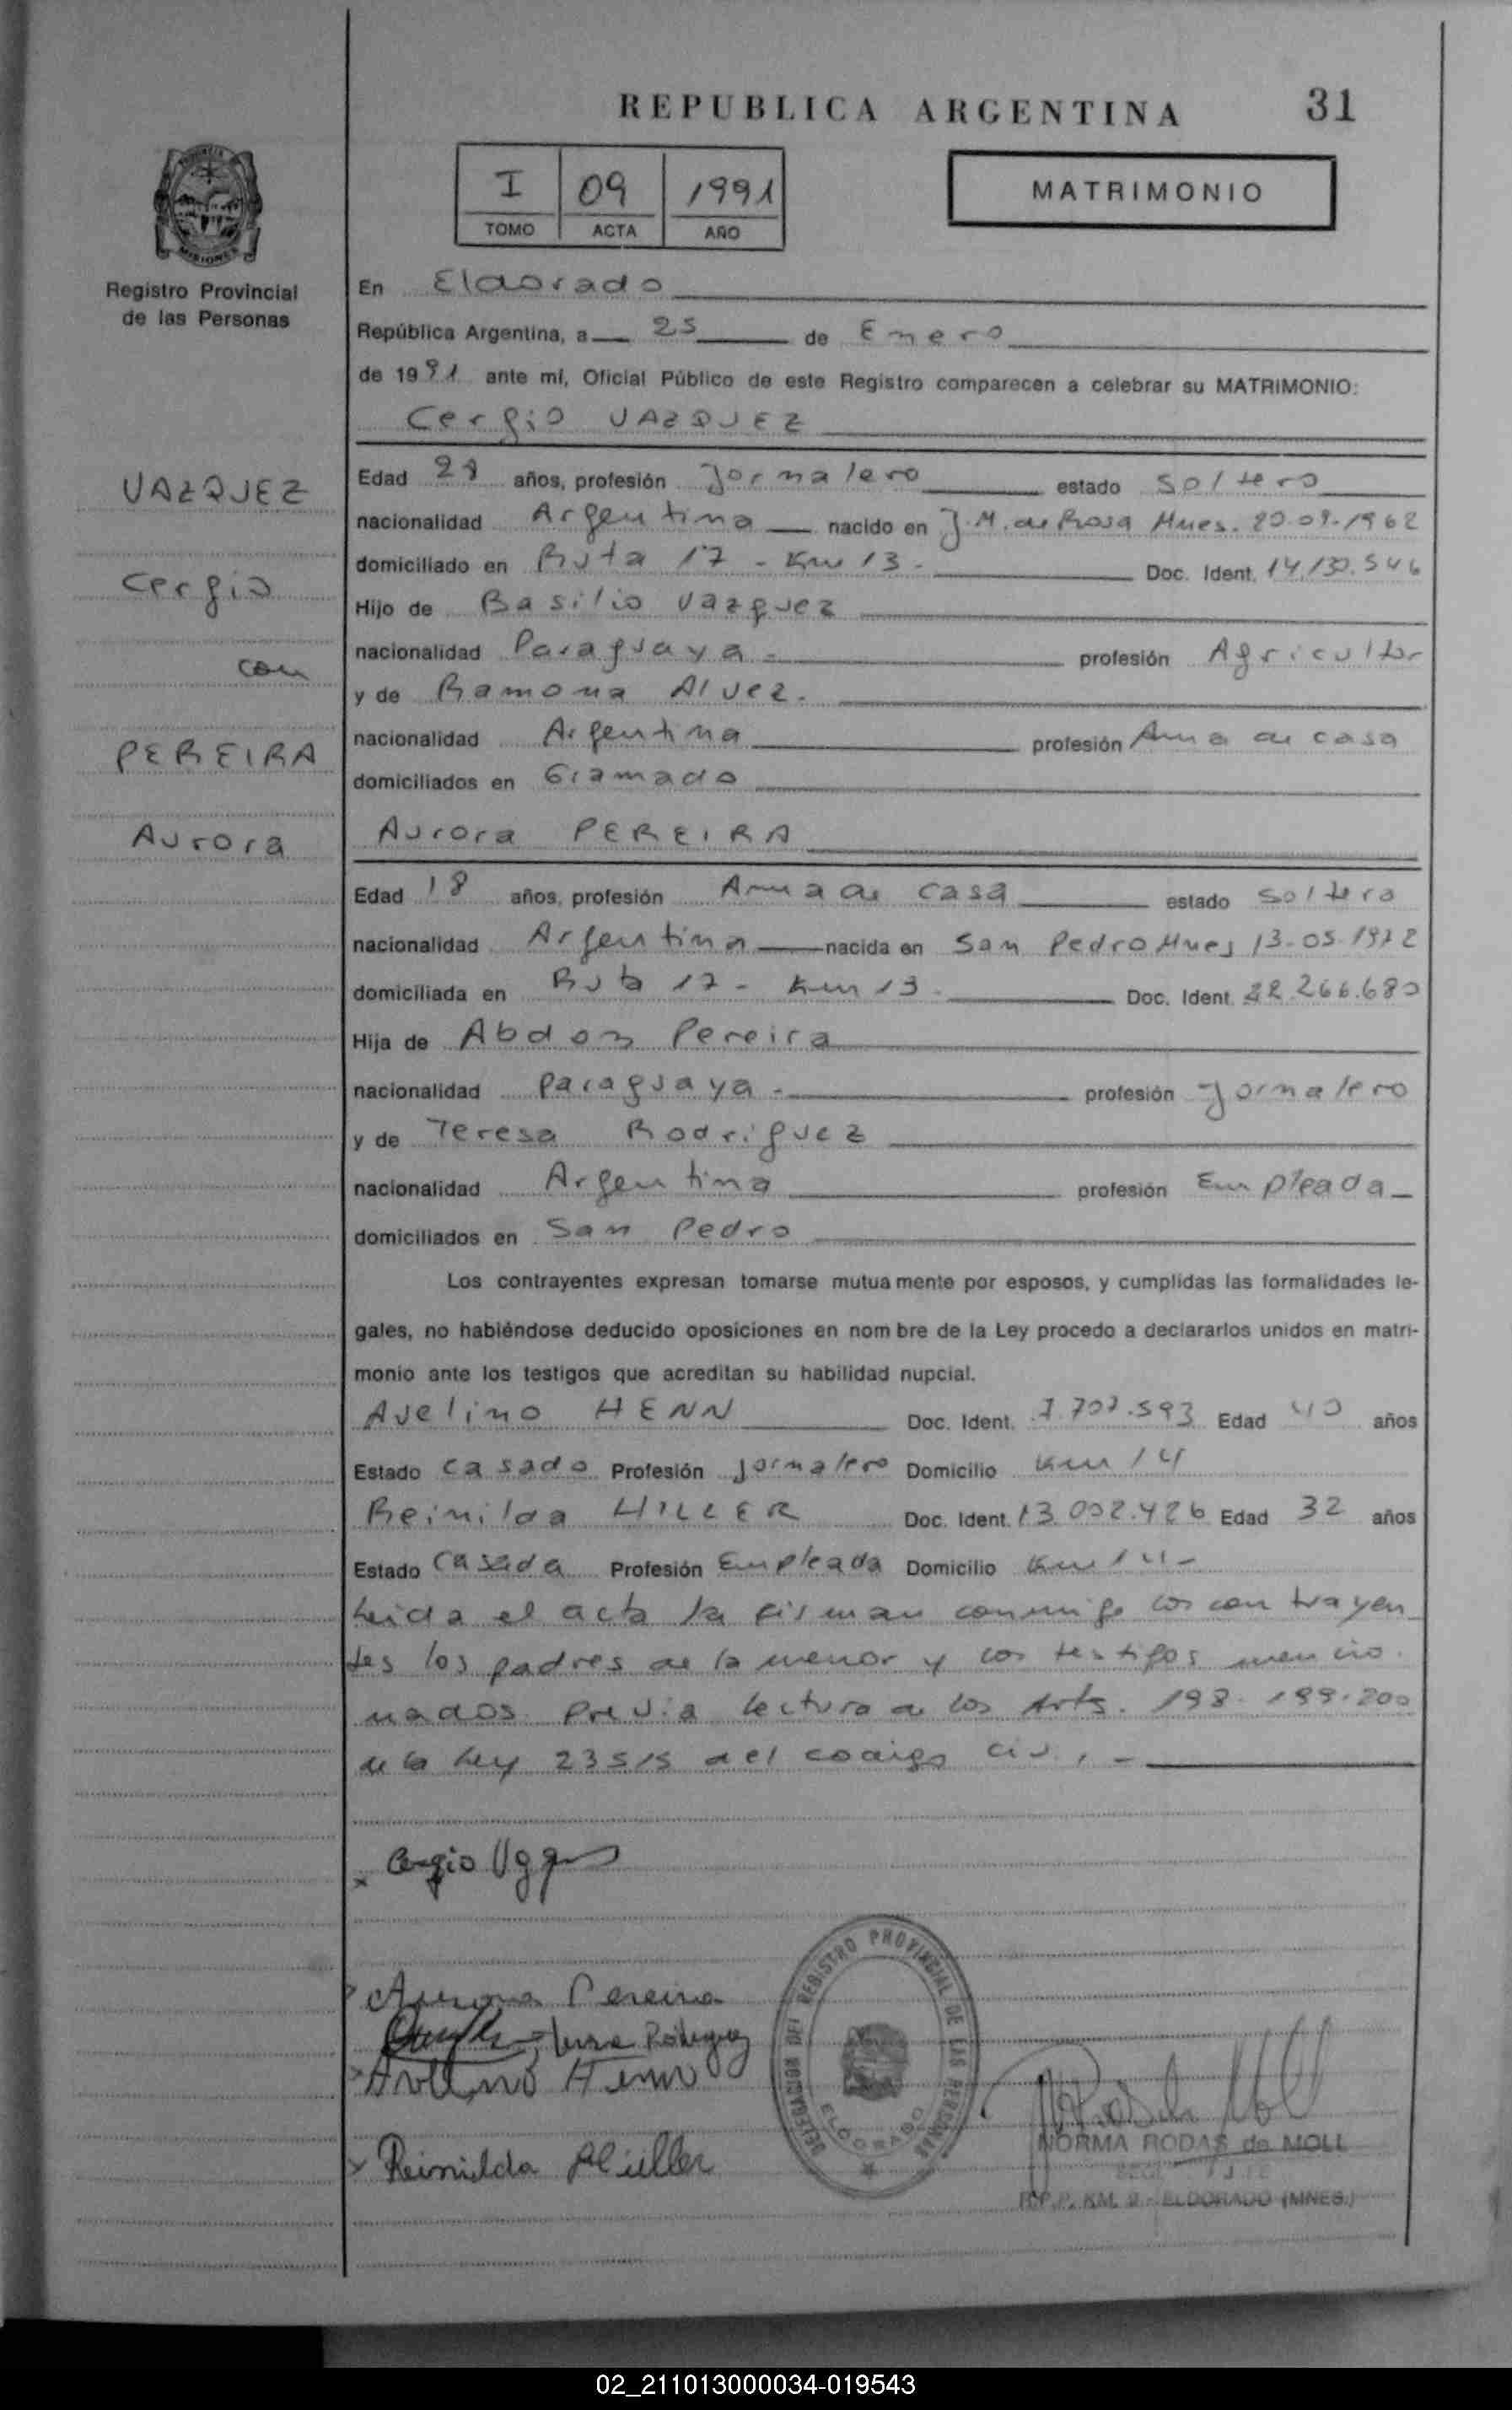 REPUBLICA ARGENTINA 31
I 09 1991
TOMO ACTA AÑO
MATRIMONIO
MISIONES
Registro Provincial
de las Personas
En Eldorado
República Argentina, a 25 de Enero
de 1991 ante mí, Oficial Público de este Registro comparecen a celebrar su MATRIMONIO:
Cergio VAZQUEZ
VAZQUEZ
Cergio
con
PEREIRA
Aurora
Edad 28 años, profesión Jornalero estado Soltero
nacionalidad Argentina nacido en J.M. de Rosa Mnes. 20.09.1962
domiciliado en Ruta 17 - Km 13 - Doc. Ident. 14.130.546
Hijo de Basilio Vazquez
nacionalidad Paraguaya - profesión Agricultor
y de Ramona Alvez.
nacionalidad Argentina profesión Ama de casa
domiciliados en Gramado
Aurora PEREIRA
Edad 18 años, profesión Ama de casa estado Soltera
nacionalidad Argentina nacida en San Pedro Mnes 13-05-1972
domiciliada en Ruta 17 - Km 13 - Doc. Ident. 22.266.680
Hija de Abdon Pereira
nacionalidad Paraguaya - profesión Jornalero
y de Teresa Rodriguez
nacionalidad Argentina profesión Empleada
domiciliados en San Pedro
Los contrayentes expresan tomarse mutua mente por esposos, y cumplidas las formalidades le-
gales, no habiéndose deducido oposiciones en nom bre de la Ley procedo a declararlos unidos en matri-
monio ante los testigos que acreditan su habilidad nupcial.
Avelino HENN Doc. Ident. 7.707.593 Edad 40 años
Estado casado Profesión Jornalero Domicilio Km 14
Reinilda HILLER Doc. Ident. 13.002.426 Edad 32 años
Estado Casada Profesión Empleada Domicilio Km 14-
Leida el acta la firman conmigo los contrayen
tes los padres de la menor y los testigos mencio
nados previa lectura de los Arts. 198-199-200
de la Ley 23515 del codigo civ. -
x Cergio
Aurora Pereira
Rodriguez
Avelino Henn
x Reinilda
DELEGACION DEL REGISTRO PROVINCIAL DE LAS PERSONAS
ELDORADO
NORMA RODAS de MOLL
R.P.P. KM. 9 - ELDORADO (MNES.)
02_211013000034-019543